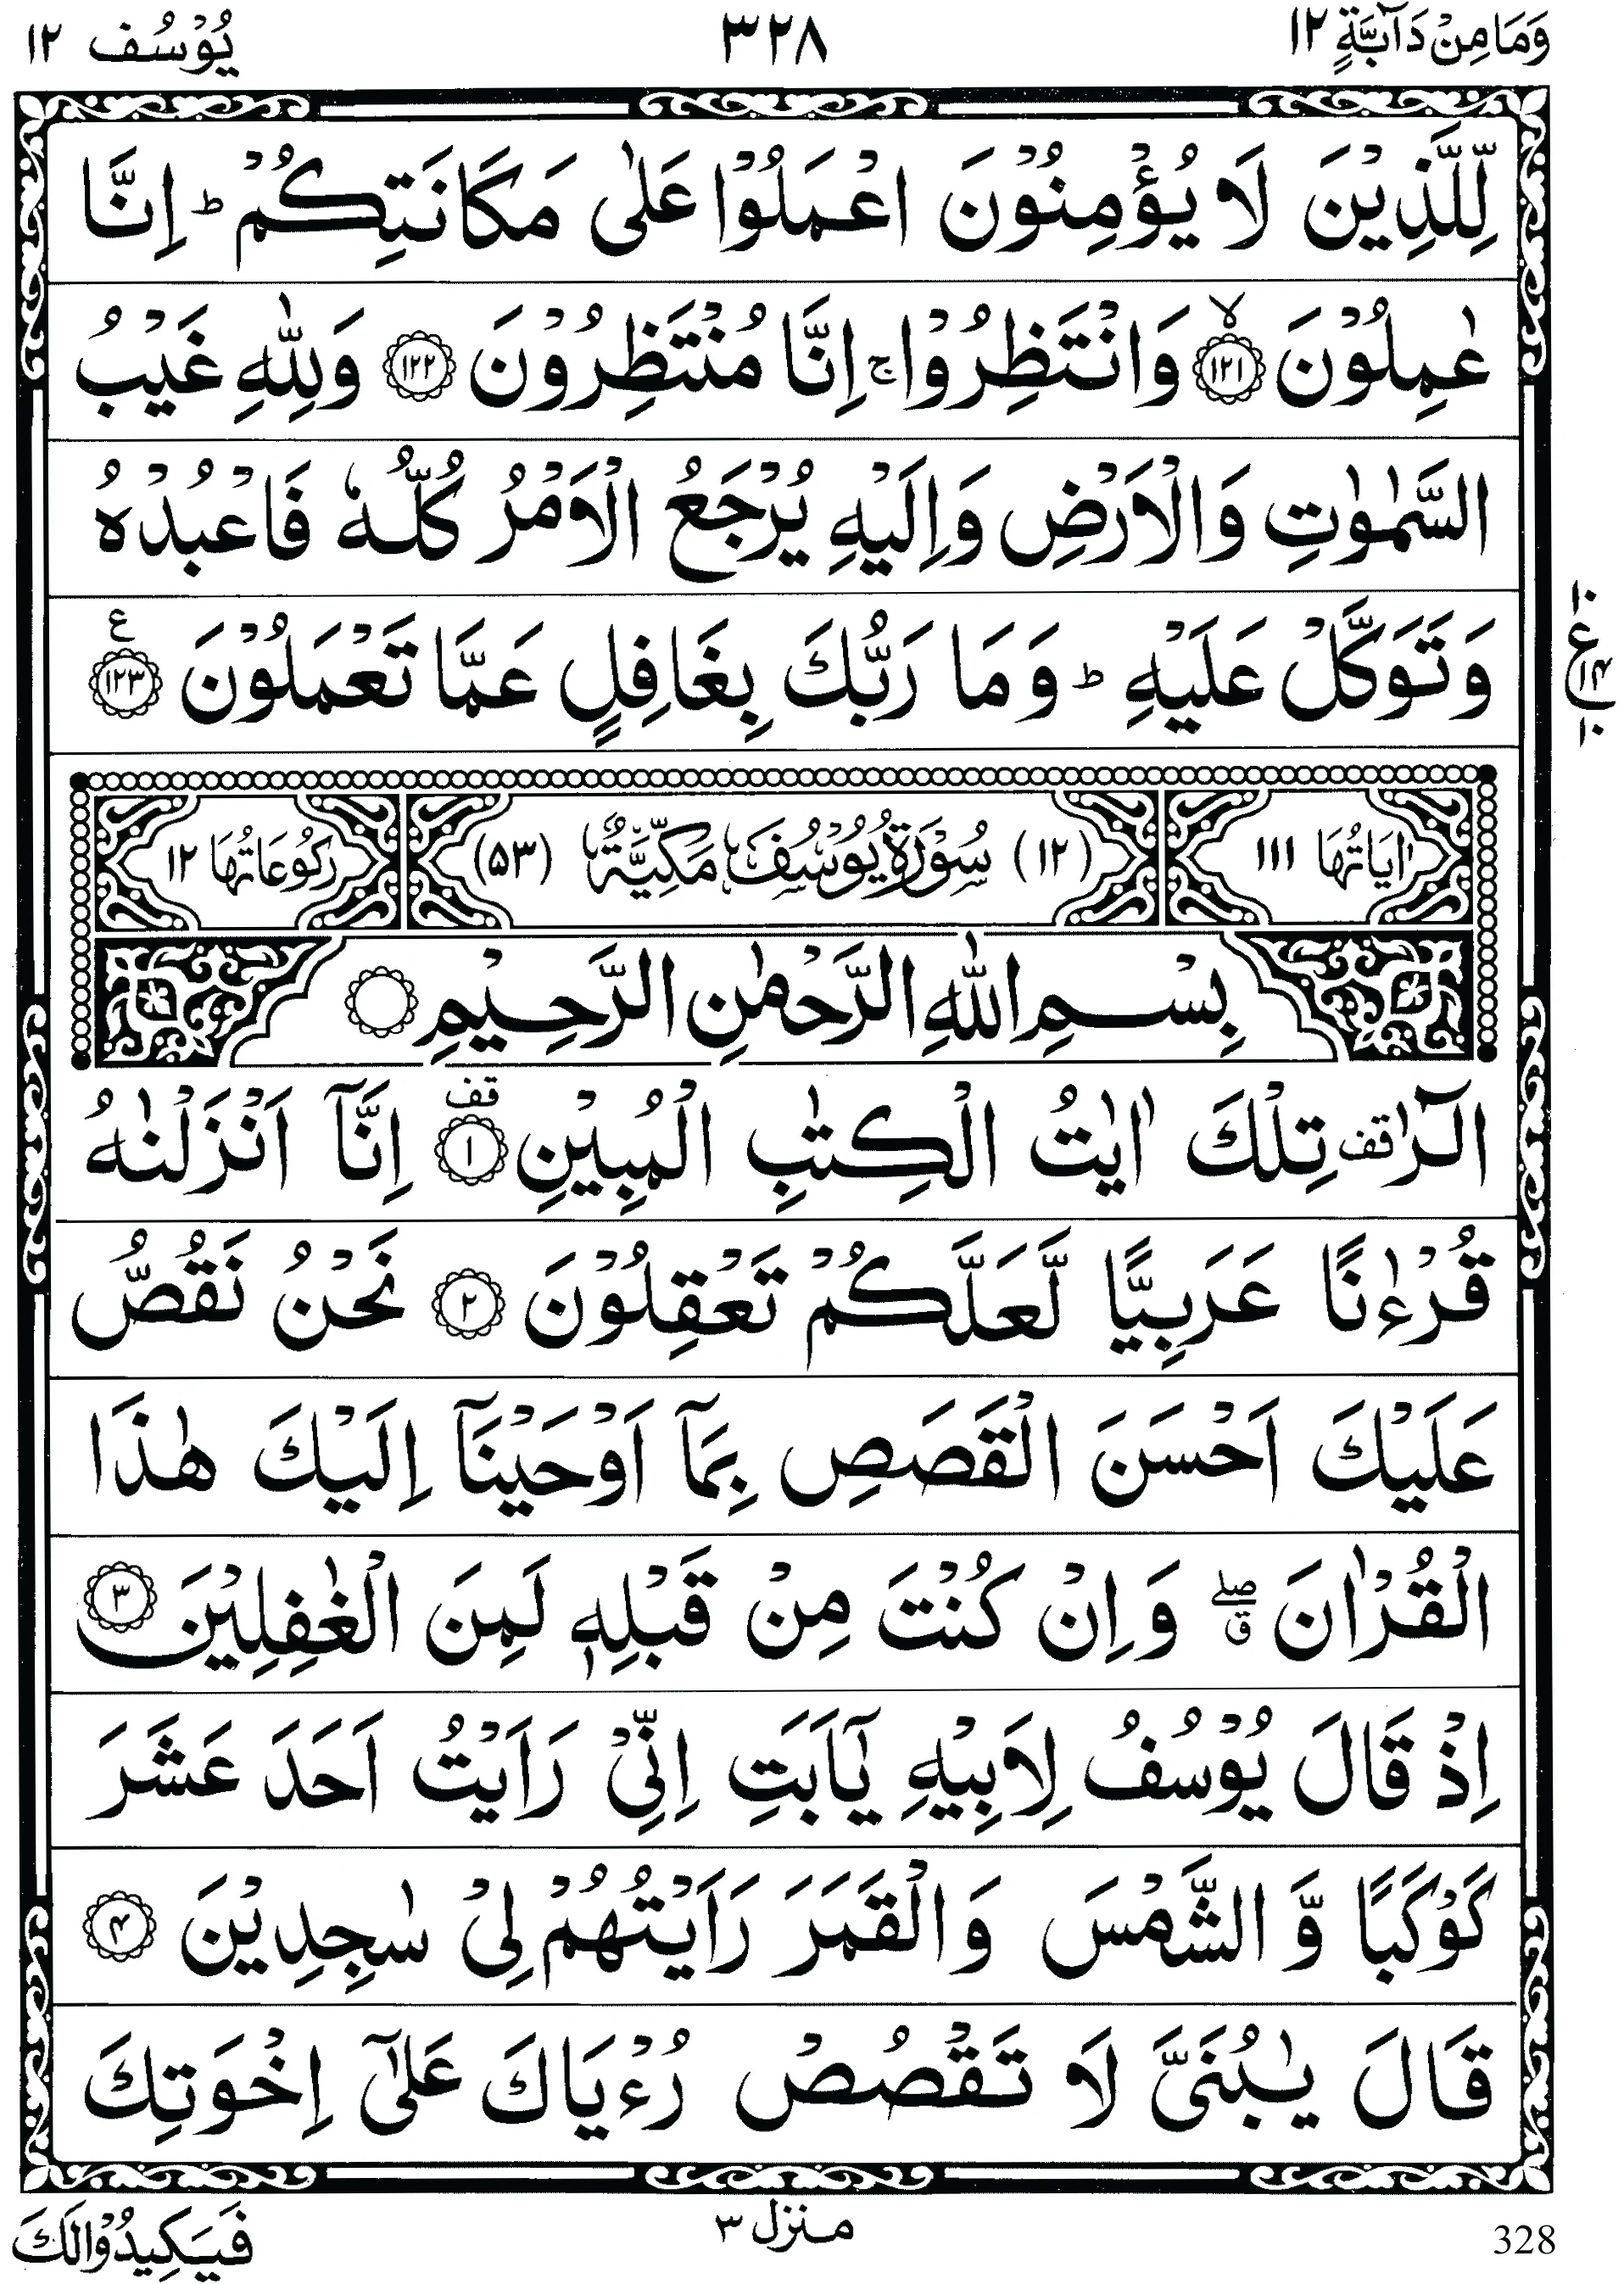 وَمَا مِنْ دَآبَّةٍ ١٢ ٣٢٨ يُوْسُف ١٢
لِّلَّذِيْنَ لَا يُؤْمِنُوْنَ اعْمَلُوْا عَلٰى مَكَانَتِكُمْ ؕ اِنَّا
عٰمِلُوْنَ ۙ﴿١٢١﴾ وَانْتَظِرُوْا ۚ اِنَّا مُنْتَظِرُوْنَ ﴿١٢٢﴾ وَلِلّٰهِ غَيْبُ
السَّمٰوٰتِ وَالْاَرْضِ وَاِلَيْهِ يُرْجَعُ الْاَمْرُ كُلُّهٗ فَاعْبُدْهُ
وَتَوَكَّلْ عَلَيْهِ ؕ وَمَا رَبُّكَ بِغَافِلٍ عَمَّا تَعْمَلُوْنَ ﴿١٢٣﴾ ع
اٰيَاتُهَا ١١١ (١٢) سُوْرَةُ يُوْسُفَ مَكِّيَّةٌ (٥٣) رُكُوْعَاتُهَا ١٢
بِسْمِ اللّٰهِ الرَّحْمٰنِ الرَّحِيْمِ
الٓرٰ قف تِلْكَ اٰيٰتُ الْكِتٰبِ الْمُبِيْنِ ﴿١﴾ قف اِنَّآ اَنْزَلْنٰهُ
قُرْءٰنًا عَرَبِيًّا لَّعَلَّكُمْ تَعْقِلُوْنَ ﴿٢﴾ نَحْنُ نَقُصُّ
عَلَيْكَ اَحْسَنَ الْقَصَصِ بِمَآ اَوْحَيْنَآ اِلَيْكَ هٰذَا
الْقُرْاٰنَ ۖ ق وَاِنْ كُنْتَ مِنْ قَبْلِهٖ لَمِنَ الْغٰفِلِيْنَ ﴿٣﴾
اِذْ قَالَ يُوْسُفُ لِاَبِيْهِ يٰٓاَبَتِ اِنِّيْ رَاَيْتُ اَحَدَ عَشَرَ
كَوْكَبًا وَّ الشَّمْسَ وَالْقَمَرَ رَاَيْتُهُمْ لِيْ سٰجِدِيْنَ ﴿٤﴾
قَالَ يٰبُنَيَّ لَا تَقْصُصْ رُءْيَاكَ عَلٰٓى اِخْوَتِكَ
فَيَكِيْدُوْا لَكَ منزل ٣ 328